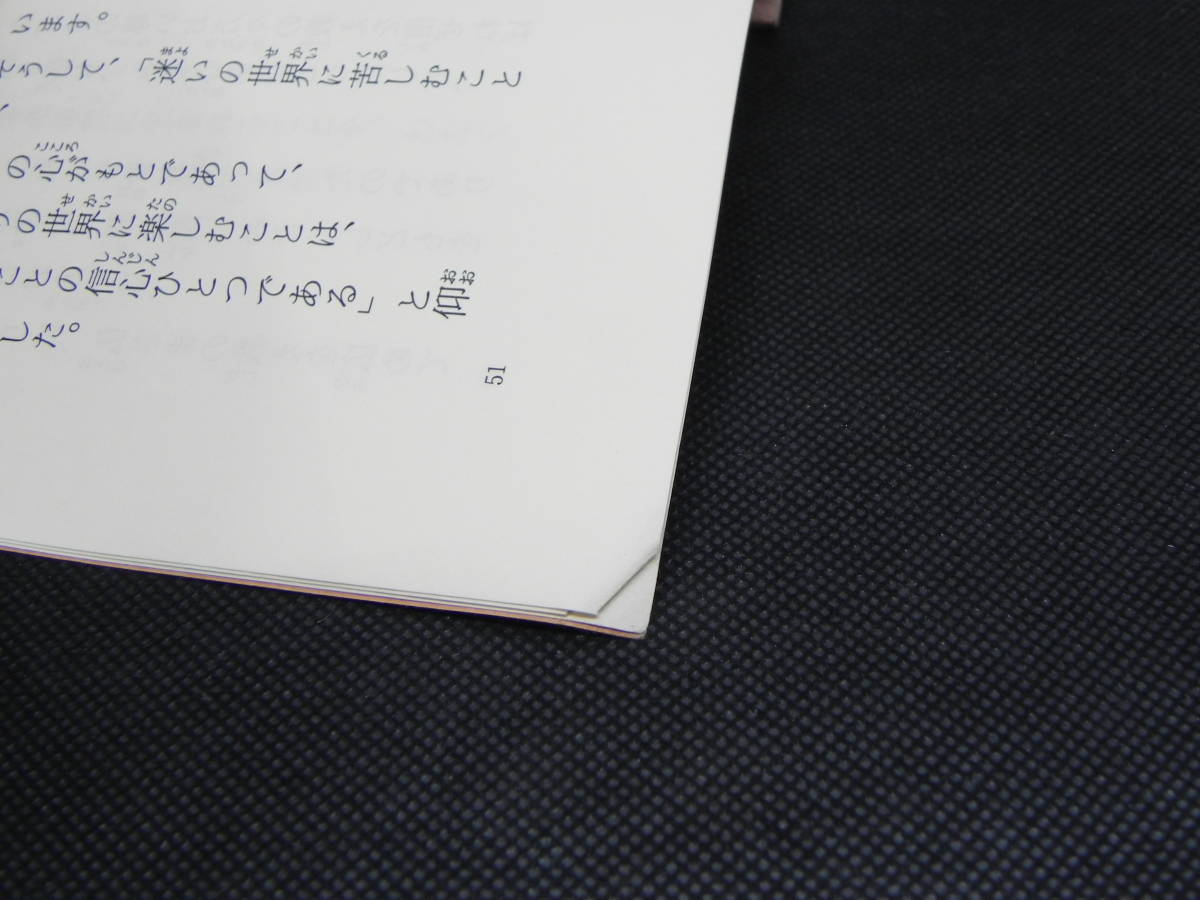 います。
そうして、「迷いの世界に苦しむこと
、
の心がもとであって、
の世界に楽しむことは、
ことの信心ひとつである」と仰
した。
51